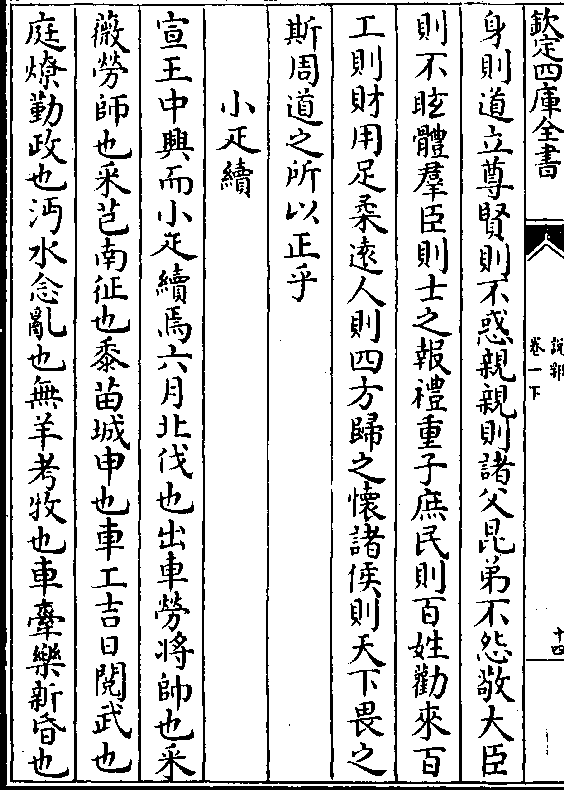 欽定四庫全書
卷一下
十四
身則道立尊賢則不惑親親則諸父昆弟不怨敬大臣
則不眩體羣臣則士之報禮重子庶民則百姓勸來百
工則財用足柔逺人則四方歸之懷諸侯則天下畏之
斯周道之所以正乎
小疋續
宣王中興而小疋續焉六月北伐也出車勞將帥也采
薇勞師也采芑南征也黍苗城申也車工吉日閱武也
庭燎勤政也沔水念亂也無羊考牧也車舝樂新昏也